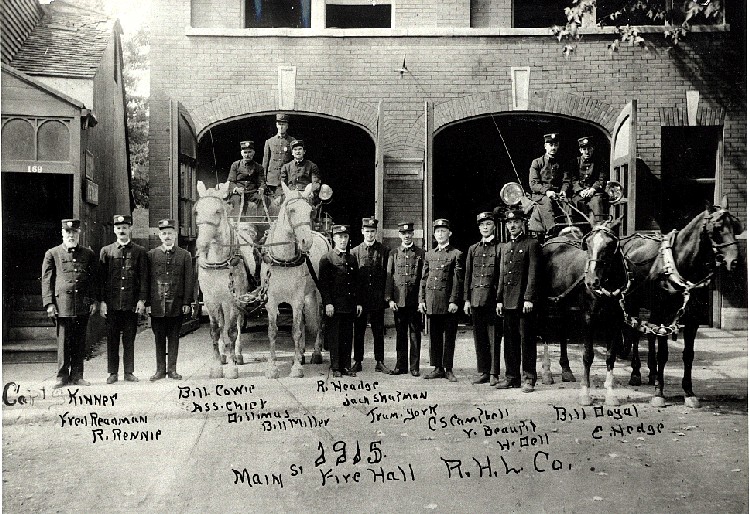 169
Capt Kinner
Fred Reanman
R. Rennie
Bill Cowie
Ass. Chief
Dillimus
Bill Miller
R. Headge
Jack Shapman
Trum. York
C S Campbell
V. Beaupit
H. Dell
Bill Doyal
E. Hedge
1915.
Main St Fire Hall R.H.L Co.